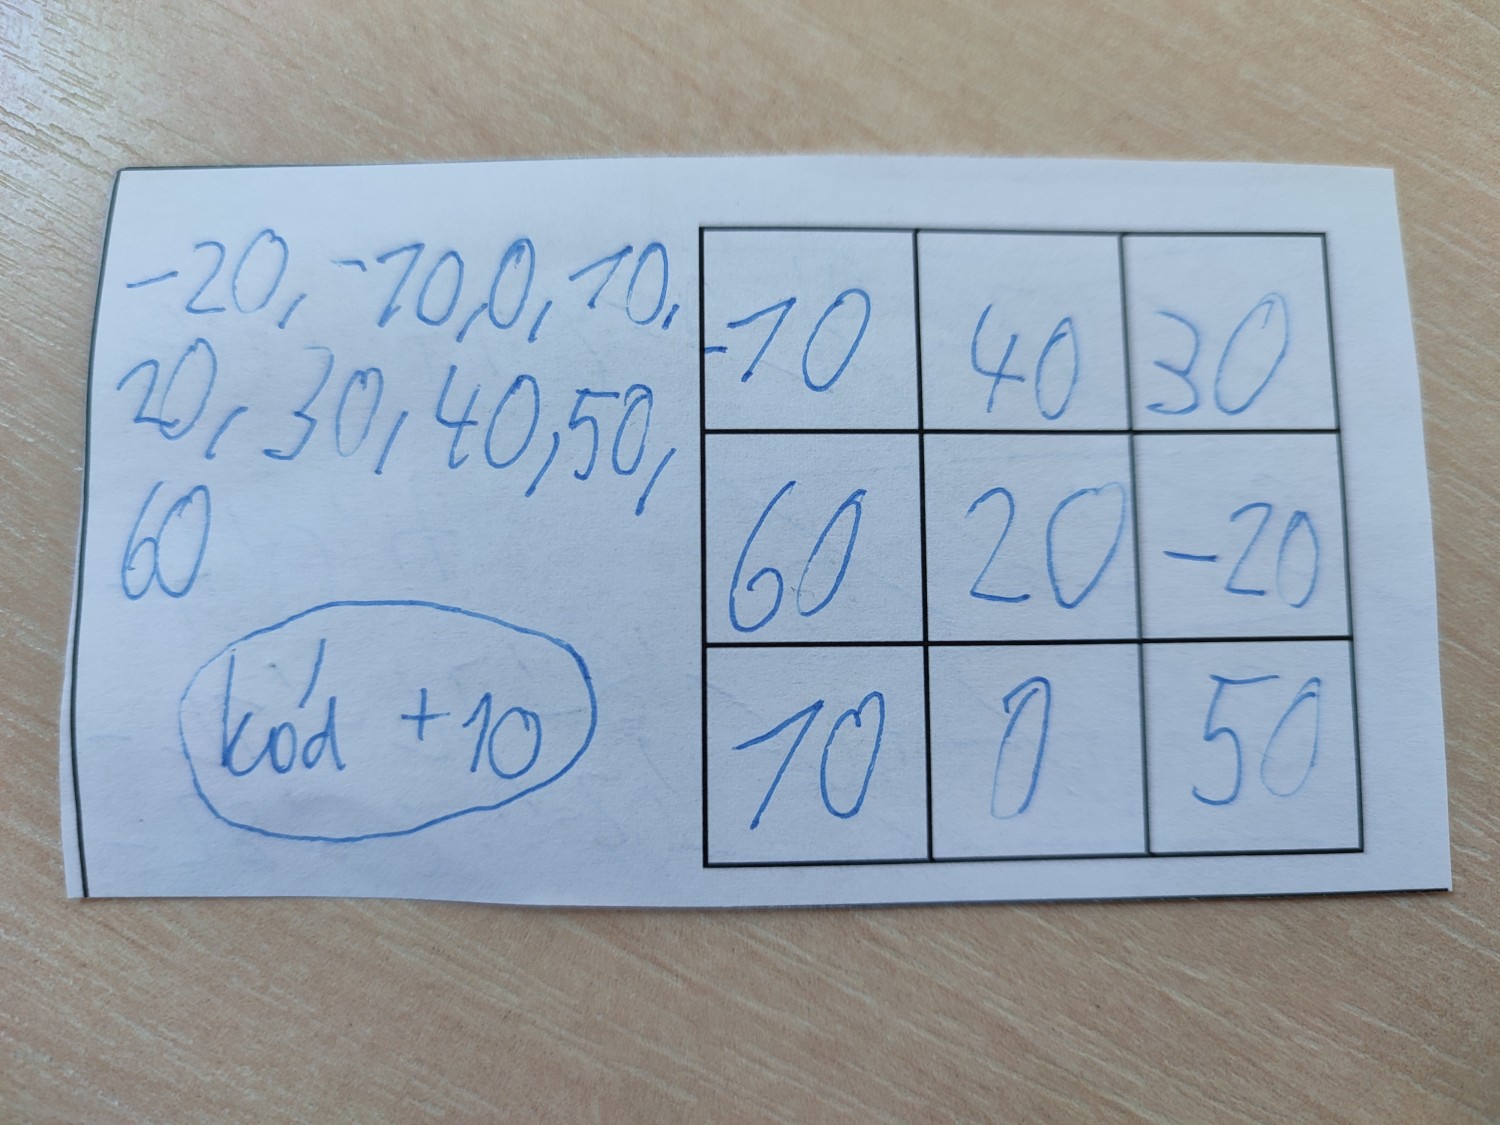 -20, -10, 0, 10,
20, 30, 40, 50,
60
kód +10
-10 40 30
60 20 -20
10 0 50